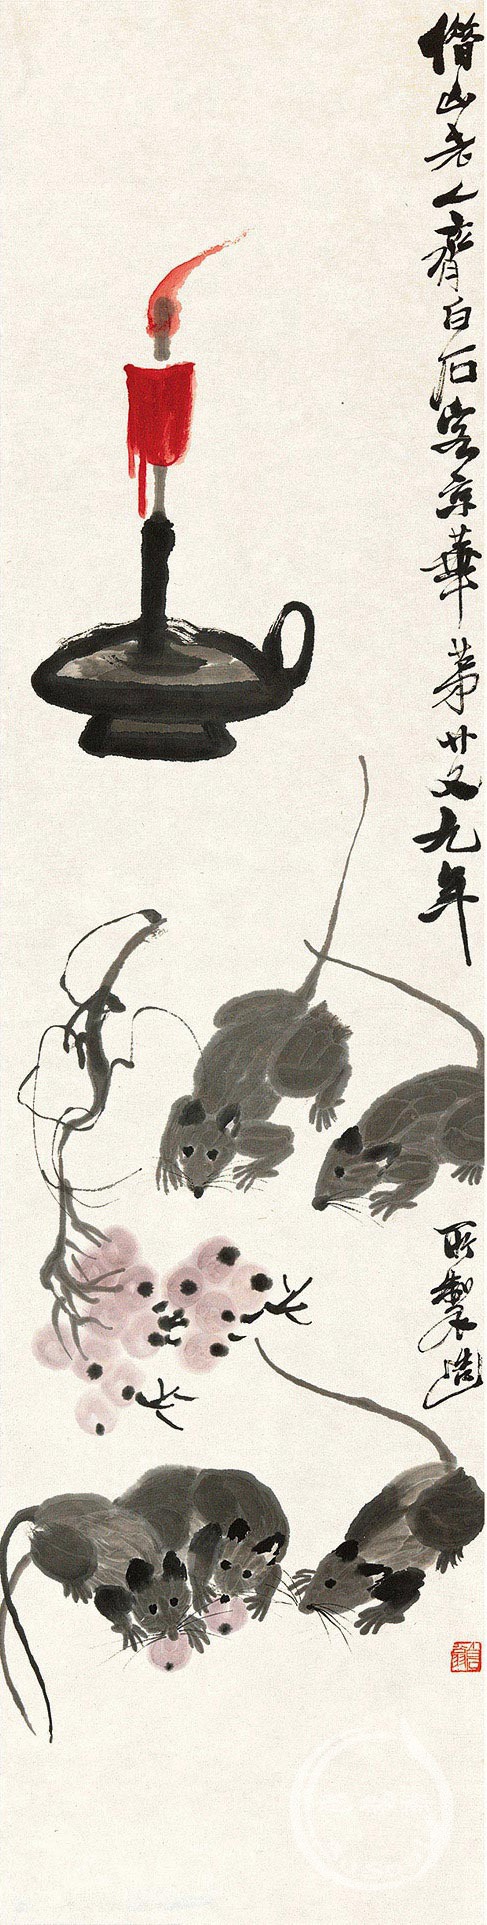 借山老人齊白石客京華第廿又九年
所製造